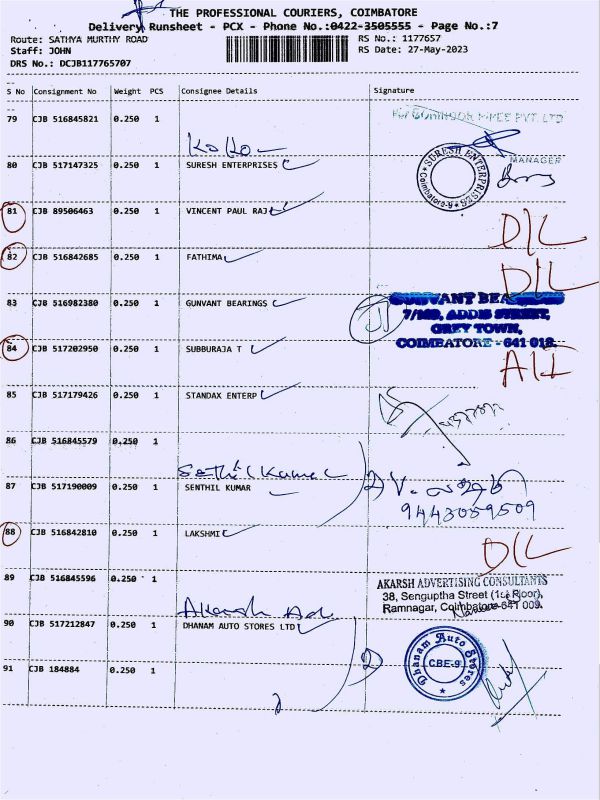 THE PROFESSIONAL COURIERS, COIMBATORE
Delivery Runsheet - PCX - Phone No.:0422-3505555 - Page No.:7
Route: SATHYA MURTHY ROAD RS No.: 1177657
Staff: JOHN RS Date: 27-May-2023
DRS No.: DCJB117765707
S No Consignment No Weight PCS Consignee Details Signature
79 CJB 516845821 0.250 1
MANAGER
80 CJB 517147325 0.250 1 SURESH ENTERPRISES
SURESH ENTERPRISES
Coimbatore-9
81 CJB 89506463 0.250 1 VINCENT PAUL RAJ D/L
82 CJB 516842685 0.250 1 FATHIMA D/L
83 CJB 516982380 0.250 1 GUNVANT BEARINGS
GUNVANT
GREY TOWN,
COIMBATORE - 641 018.
84 CJB 517202950 0.250 1 SUBBURAJA T
85 CJB 517179426 0.250 1 STANDAX ENTERP
86 CJB 516845579 0.250 1
Senthil Kumar
87 CJB 517190009 0.250 1 SENTHIL KUMAR
9443059509
88 CJB 516842810 0.250 1 LAKSHMI D/L
89 CJB 516845596 0.250 1
AKARSH ADVERTISING CONSULTANTS
38, Senguptha Street (1st Floor),
Ramnagar, Coimbatore-641 009.
Akarsh Ads
90 CJB 517212847 0.250 1 DHANAM AUTO STORES LTD
Dhanam Auto Stores
CBE-9
91 CJB 184884 0.250 1